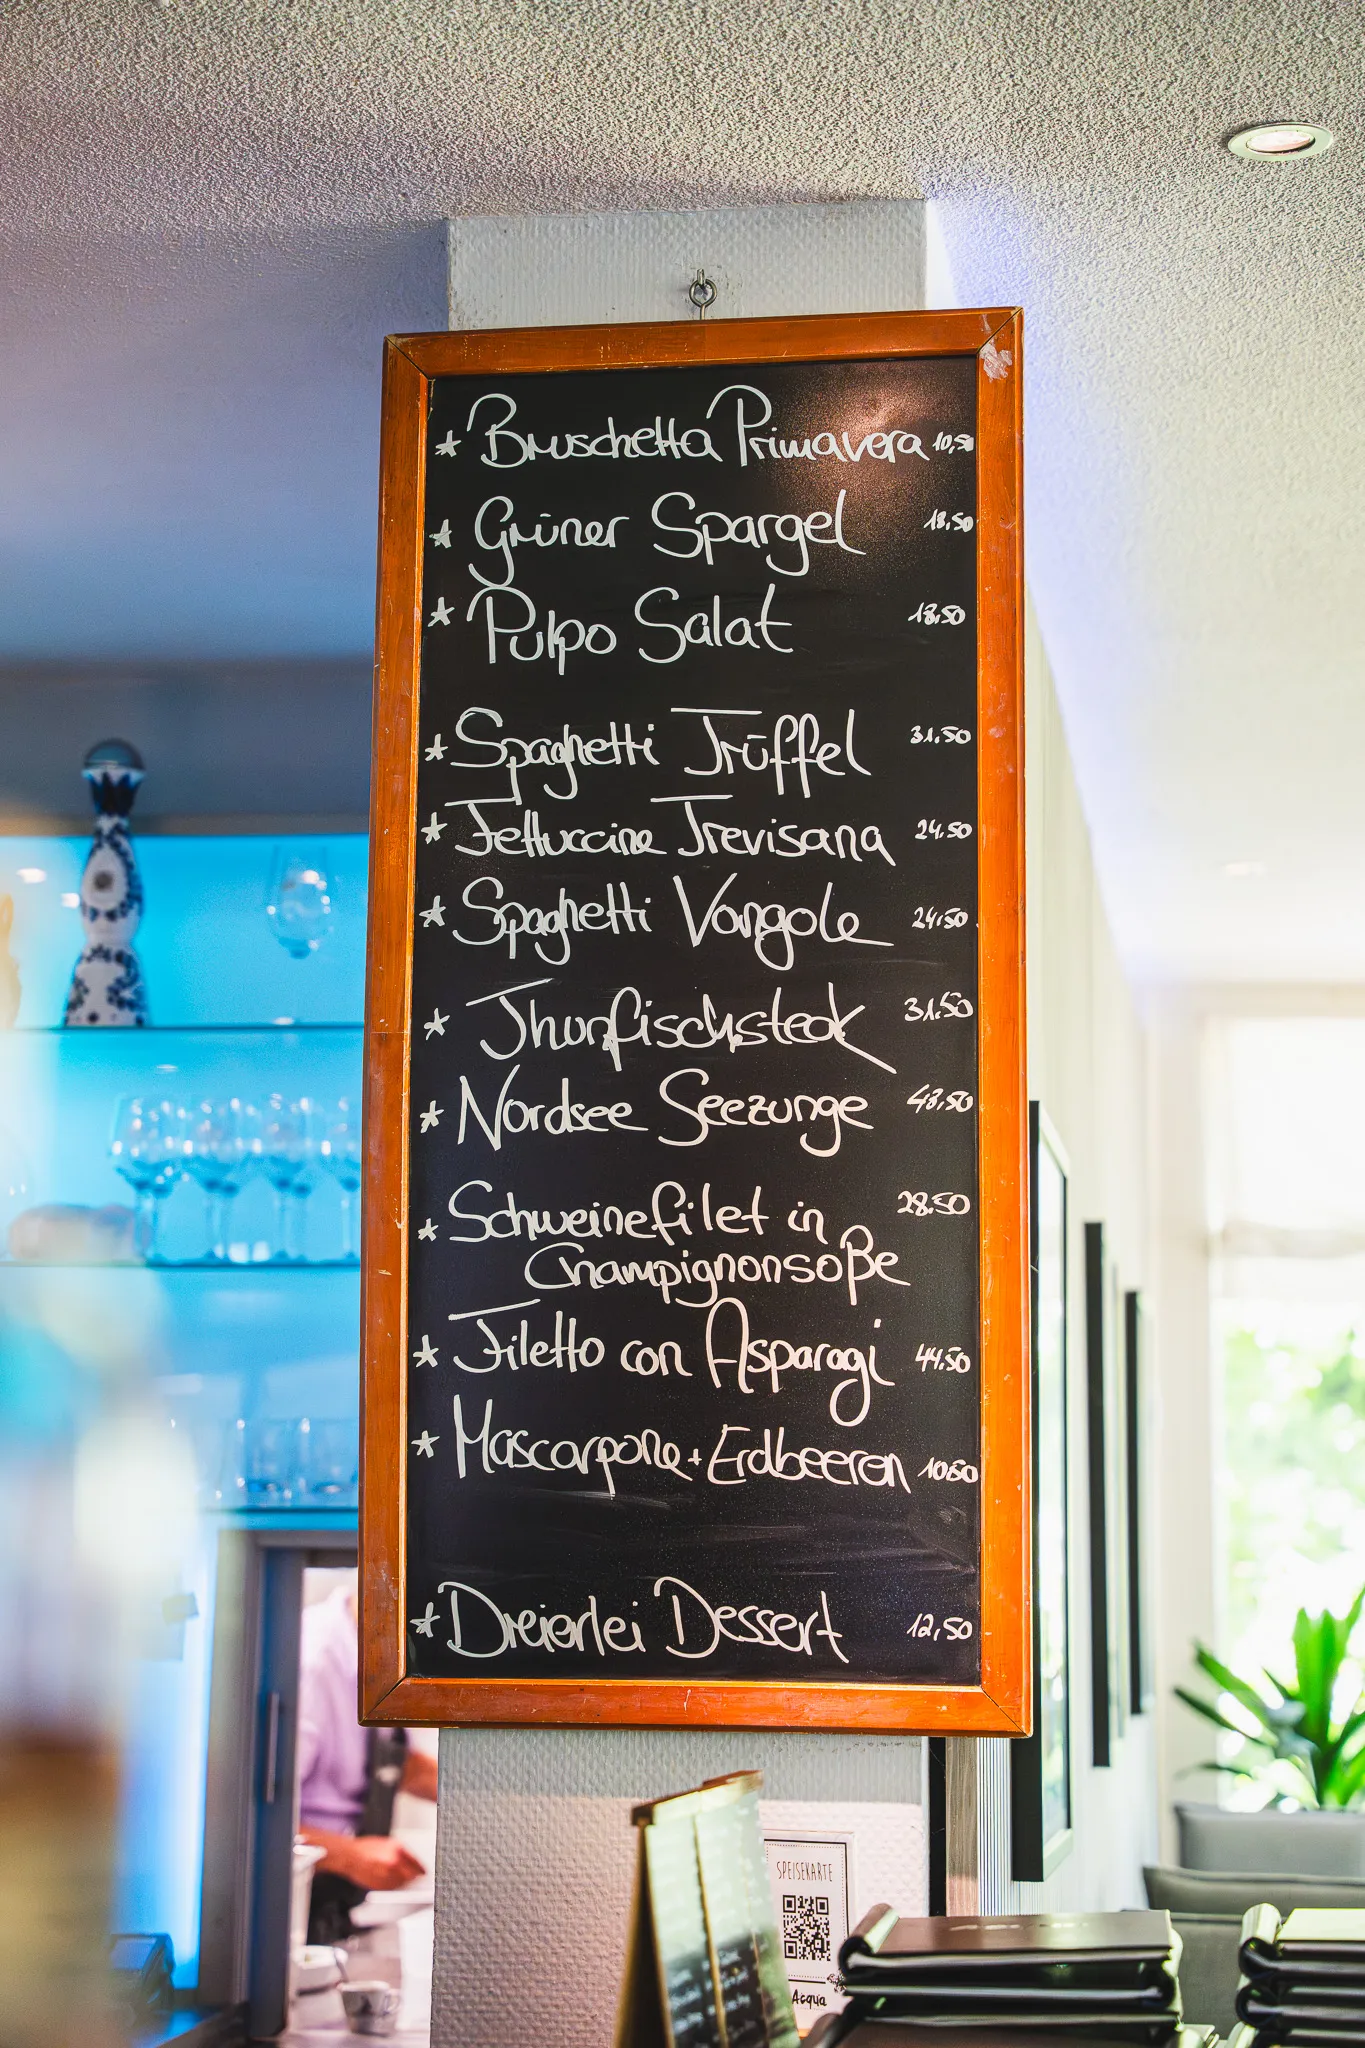 * Bruschetta Primavera 10,50
* Grüner Spargel 18,50
* Pulpo Salat 18,50
* Spaghetti Trüffel 31.50
* Fettuccine Trevisana 24.50
* Spaghetti Vongole 24.50
* Thunfischsteak 31.50
* Nordsee Seezunge 48,50
* Schweinefilet in 28.50
Champignonsoße
* Filetto con Asparagi 44.50
* Mascarpone + Erdbeeren 10.50
* Dreierlei Dessert 12,50
SPEISEKARTE
Acqua